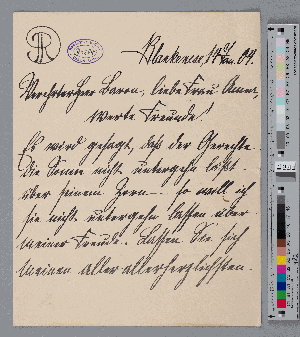 Blankenese, 14. Jan. 04.
Verehrtester Baron, liebe Frau Anna,
werte Freunde!
Es wird gesagt, daß der Gerechte
die Sonne nicht untergehn läßt
über seinem Zorn — so will ich
sie nicht untergehn lassen über
meiner Freude. Lassen Sie sich
meinen aller allerherzlichsten